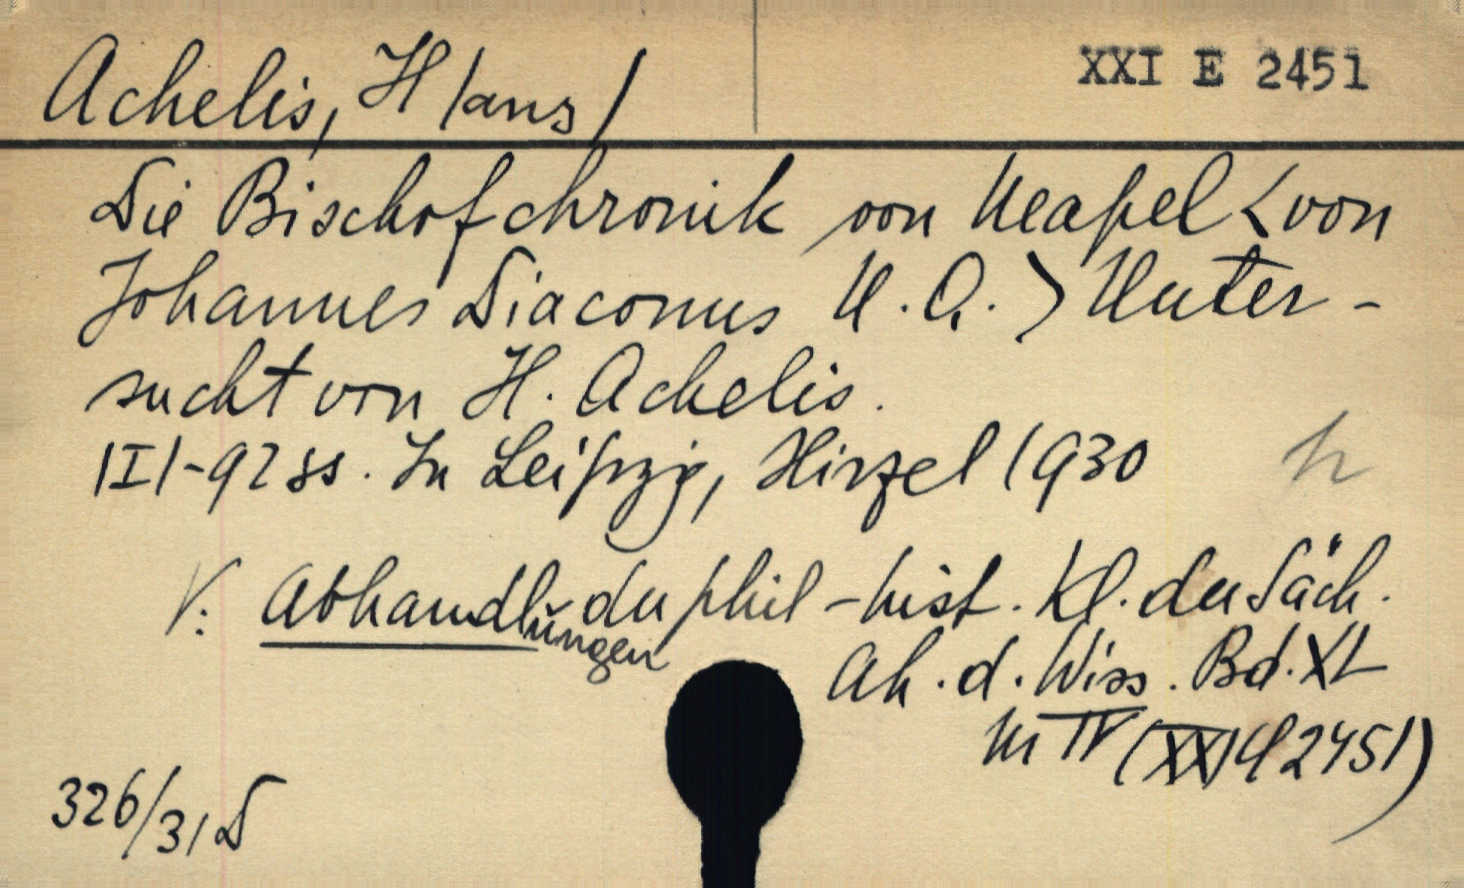 Achelis, H/ans/
XXI E 2451
Die Bischofchronik von Neapel <von
Johannes Diaconus U. A.> Unter-
sucht von H. Achelis.
/I/-92 ss. In Leipzig, Hirzel 1930
V: Abhandlungen der phil-hist. Kl. der Säch.
Ak. d. Wiss. Bd. XL
Nr IV (XXI E 2451)
326/31 D